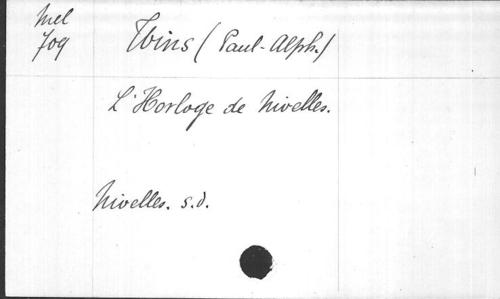 Mel
709
Tbins (Paul-Alph.)
L'Horloge de Nivelles.
Nivelles. s.d.